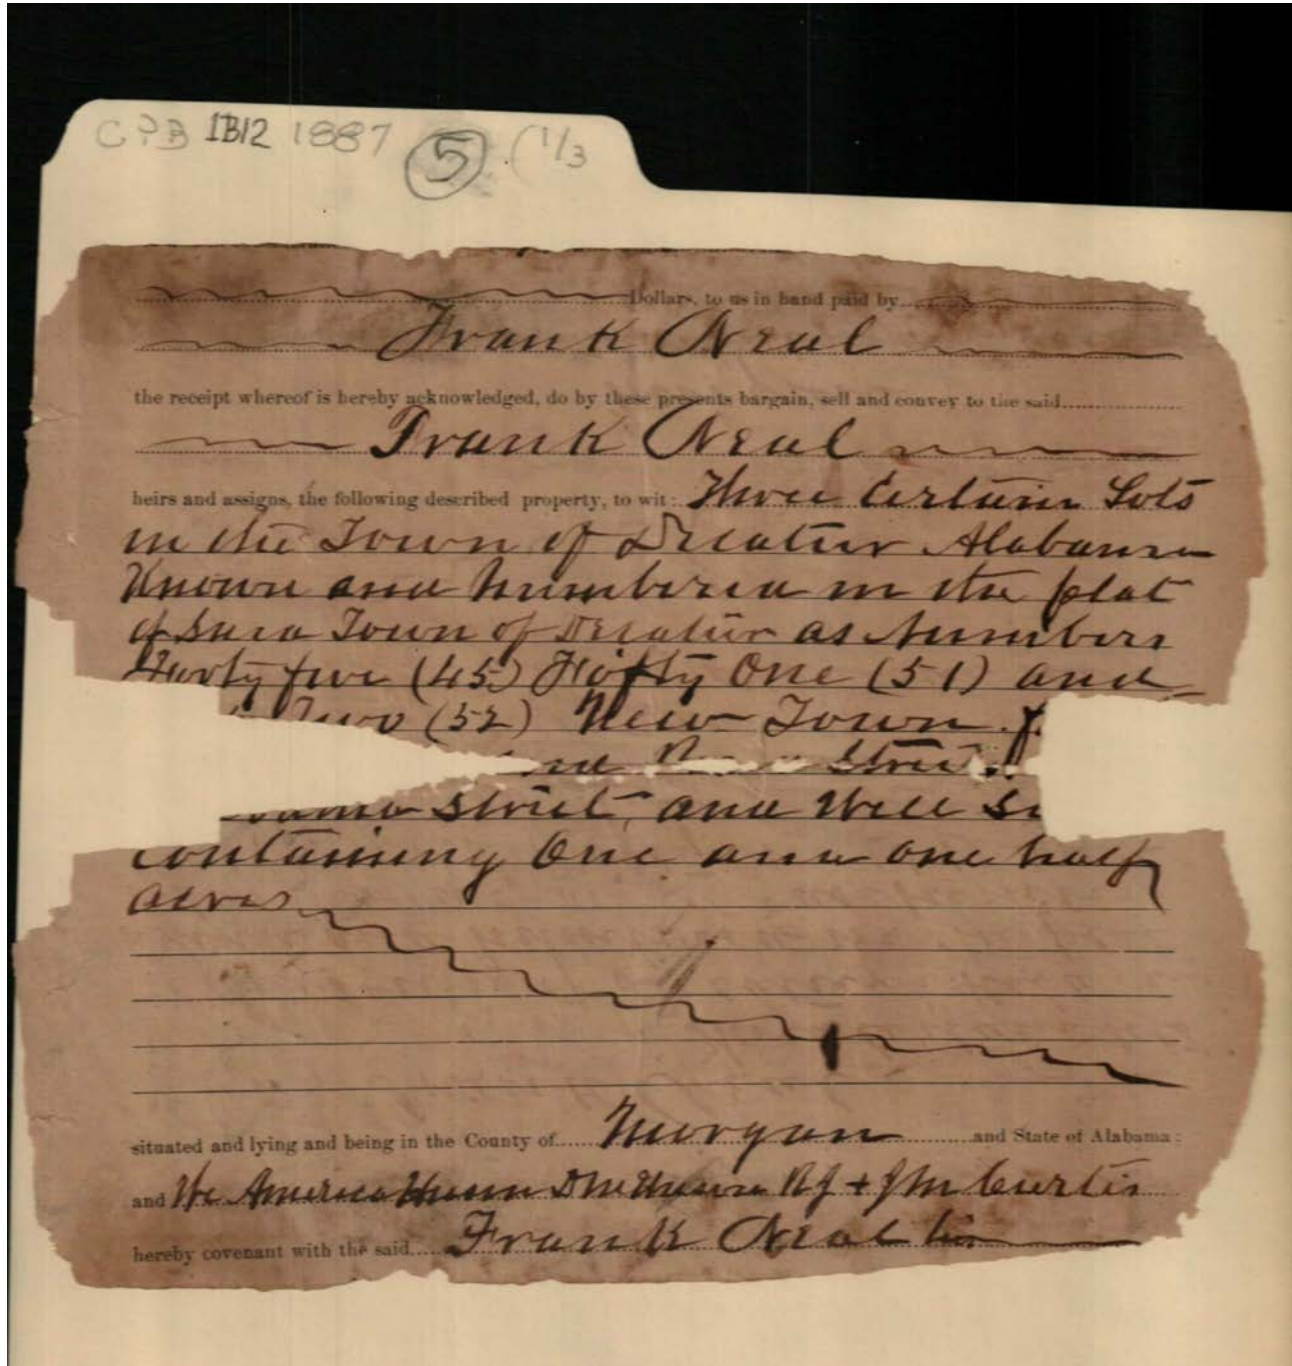 CPB 1B12 1887 5 (1/3
Dollars, to us in hand paid by
Frank Neal
the receipt whereof is hereby acknowledged, do by these presents bargain, sell and convey to the said
Frank Neal
heirs and assigns, the following described property, to wit: Three Certain Lots
in the Town of Decatur Alabama
Known and Numbered in the plat
of Said Town of Decatur as Numbers
five (45) Fifty One (51) and
Two (52) New Town
Street
Street, and Well
containing One and one half
acres
situated and lying and being in the County of Morgan and State of Alabama:
and We America R J + J M Curtis
hereby covenant with the said Frank Neal his